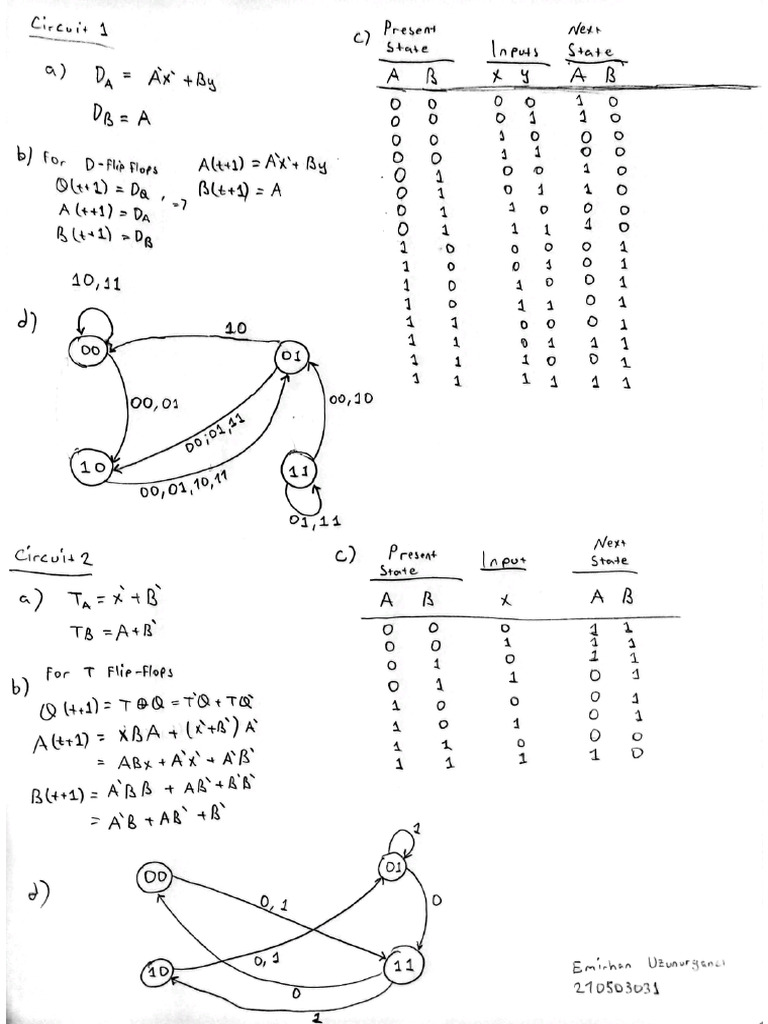 Circuit 1
a) D_A = A`x` + By
D_B = A
b) For D-Flip Flops
Q(t+1) = D_Q , =>
A(t+1) = D_A
B(t+1) = D_B
A(t+1) = A`x` + By
B(t+1) = A
c) Present State Inputs Next State
A B x y A B
0 0 0 0 1 0
0 0 0 1 1 0
0 0 1 0 0 0
0 0 1 1 0 0
0 1 0 0 1 0
0 1 0 1 1 0
0 1 1 0 0 0
0 1 1 1 1 0
1 0 0 0 0 1
1 0 0 1 0 1
1 0 1 0 0 1
1 0 1 1 0 1
1 1 0 0 0 1
1 1 0 1 1 1
1 1 1 0 0 1
1 1 1 1 1 1
d)
10, 11
00
10
01
00, 01
00, 01, 11
00, 10
10
00, 01, 10, 11
11
01, 11
Circuit 2
a) T_A = x` + B`
TB = A + B`
b) For T Flip-Flops
Q(t+1) = T ⊕ Q = T`Q + TQ`
A(t+1) = XBA + (x` + B`) A`
= ABx + A`x` + A`B`
B(t+1) = A`BB + AB` + B`B`
= A`B + AB` + B`
c) Present State Input Next State
A B x A B
0 0 0 1 1
0 0 1 1 1
0 1 0 1 1
0 1 1 0 1
1 0 0 0 1
1 0 1 0 1
1 1 0 0 0
1 1 1 1 0
d)
1
00
01
0, 1
0
0, 1
10
11
0
1
Emirhan Uzunurganci
270503031